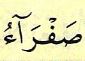 صَفْرَآءُ